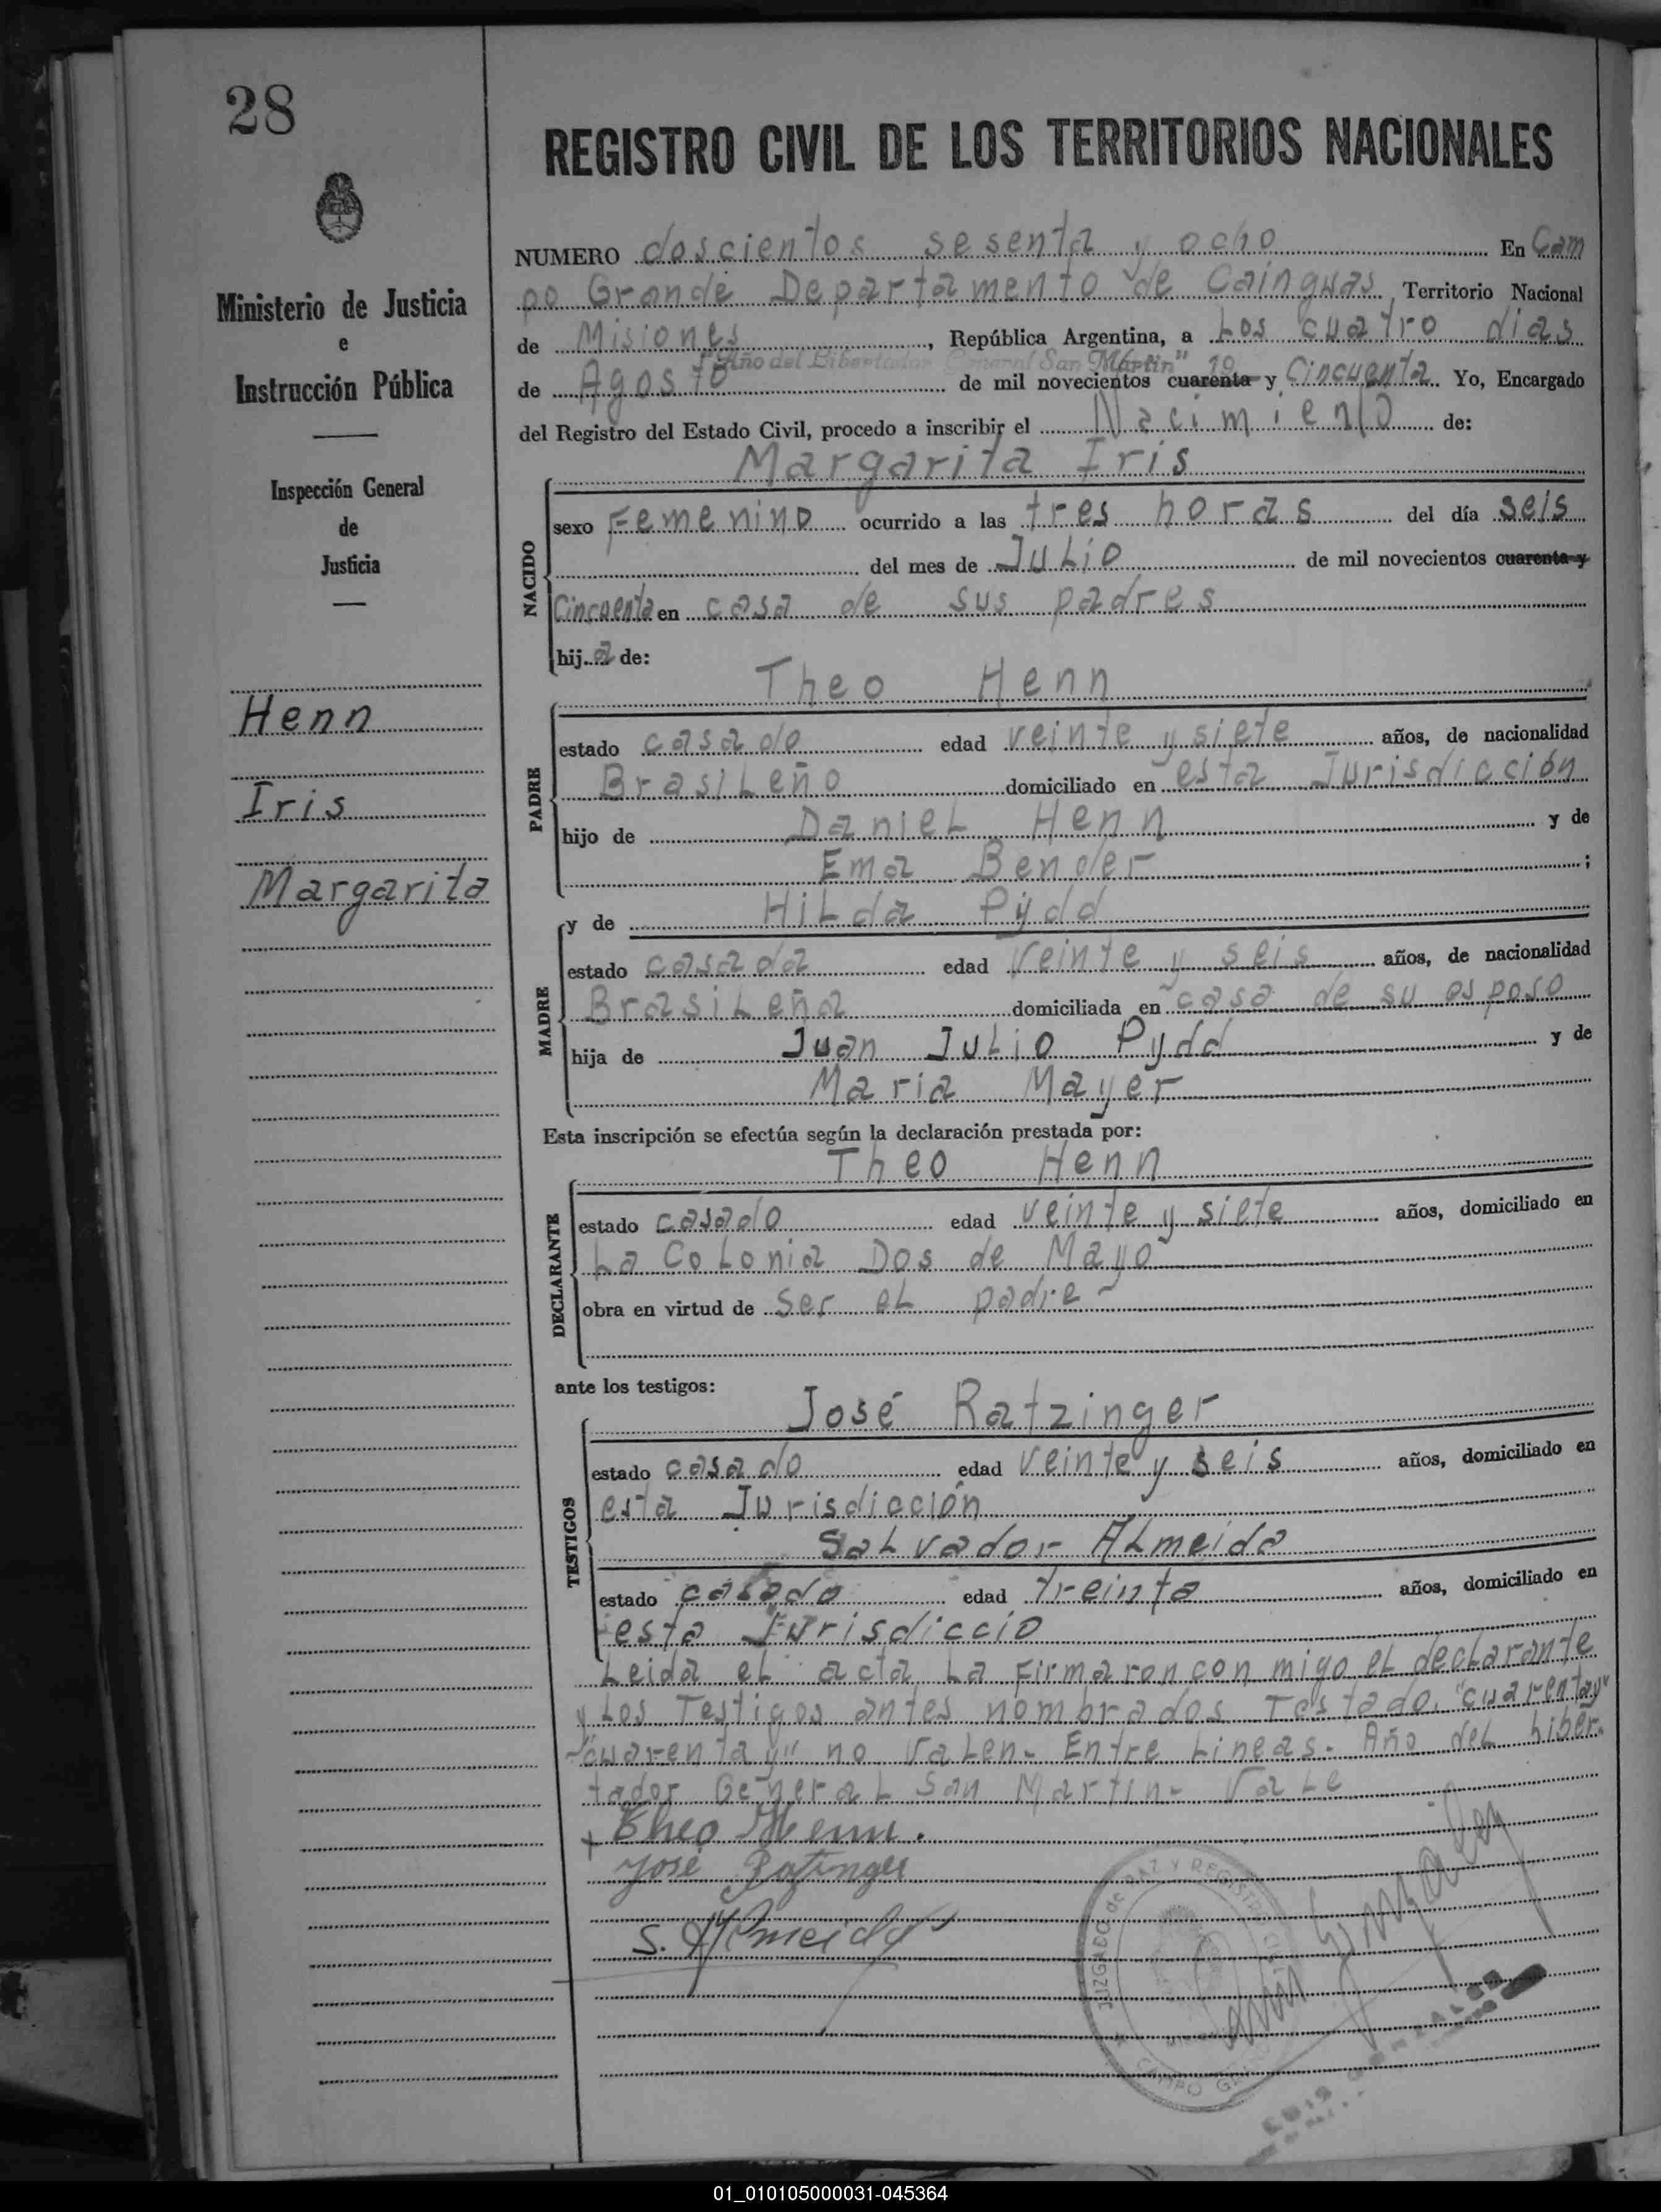 28
REGISTRO CIVIL DE LOS TERRITORIOS NACIONALES
Ministerio de Justicia
e
Instrucción Pública
Inspección General
de
Justicia
Henn
Iris
Margarita
NUMERO doscientos sesenta y ocho En Cam
po Grande Departamento de Cainguas, Territorio Nacional
de Misiones, República Argentina, a Los cuatro dias
"Año del Libertador General San Martin" 19
de Agosto de mil novecientos cuarenta y Cincuenta. Yo, Encargado
del Registro del Estado Civil, procedo a inscribir el Nacimiento de:
Margarita Iris
NACIDO
sexo Femenino ocurrido a las tres horas del día seis
del mes de Julio de mil novecientos cuarenta y
Cincuenta en casa de sus padres
hija de:
Theo Henn
PADRE
estado casado edad veinte y siete años, de nacionalidad
Brasileño domiciliado en esta Jurisdicción
hijo de Daniel Henn y de
Ema Bender;
y de Hilda Pydd
MADRE
estado casada edad veinte y seis años, de nacionalidad
Brasileña domiciliada en casa de su esposo
hija de Juan Julio Pydd y de
Maria Mayer
Esta inscripción se efectúa según la declaración prestada por:
Theo Henn
DECLARANTE
estado casado edad veinte y siete años, domiciliado en
La Colonia Dos de Mayo
obra en virtud de ser el padre-
ante los testigos:
José Ratzinger
TESTIGOS
estado casado edad veinte y seis años, domiciliado en
esta Jurisdicción
Salvador Almeida
estado casado edad treinta años, domiciliado en
esta Jurisdiccio
Leida el acta La Firmaron con migo el declarante
y Los Testigos antes nombrados Testado. "cuarenta y"
"cuarenta y" no valen- Entre Lineas- Año del Liber
tador General San Martin- Vale
Theo Henn.
José Ratzinger
S. Almeida
JUZGADO de PAZ Y REGISTRO CIVIL
CAMPO GRANDE
01_010105000031-045364